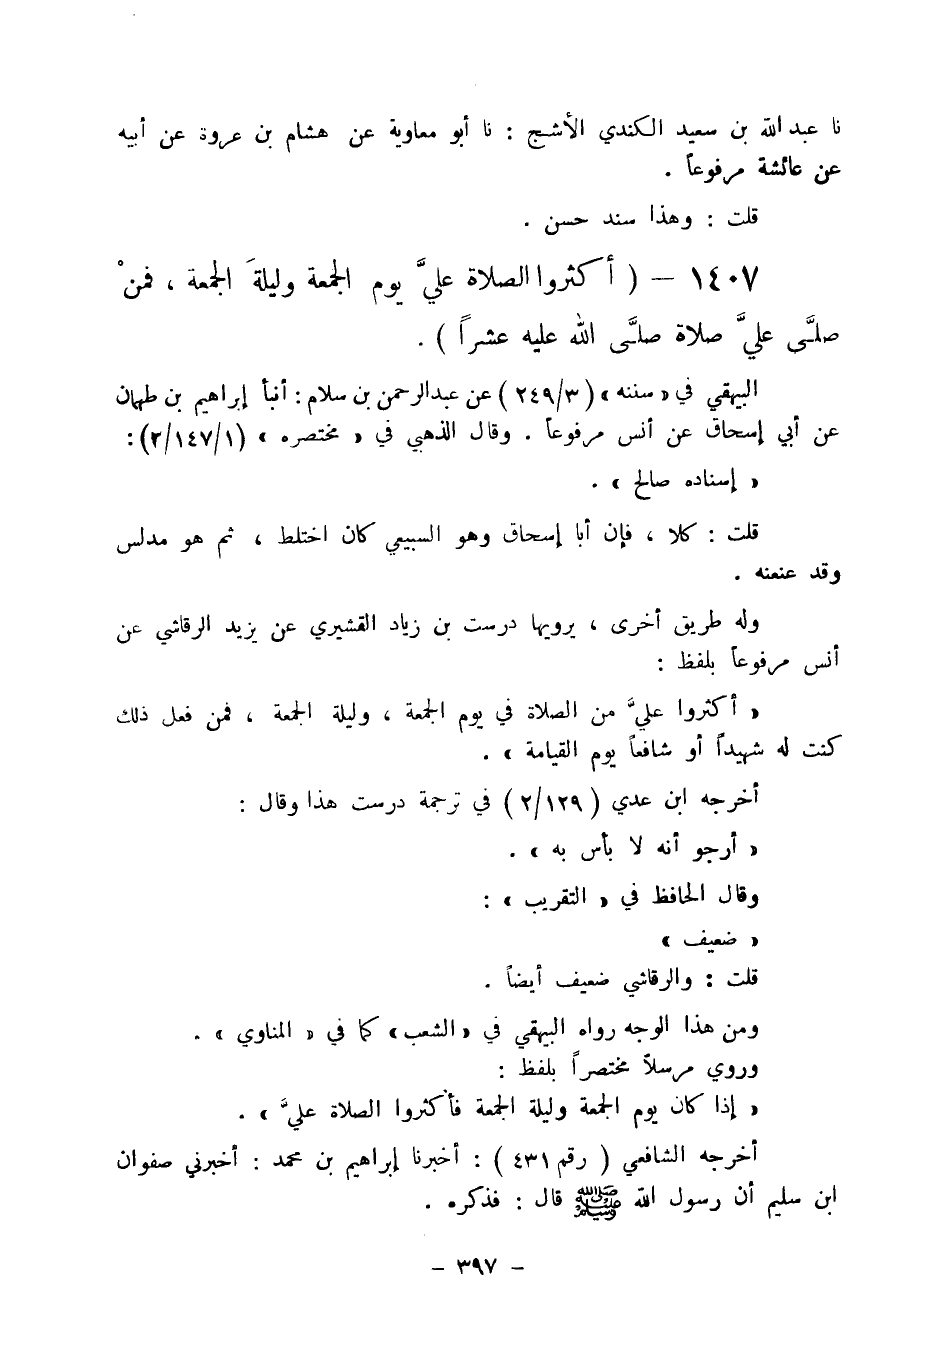 نا عبد الله بن سعيد الكندي الأشج : نا أبو معاوية عن هشام بن عروة عن أبيه
عن عائشة مرفوعاً .
قلت : وهذا سند حسن .
١٤٠٧ – ( أكثروا الصلاة عليَّ يوم الجمعة وليلةَ الجمعة ، فمنْ
صلَّى عليَّ صلاة صلَّى الله عليه عشراً ) .
البيهقي في « سننه » ( ٢٤٩/٣ ) عن عبدالرحمن بن سلام : أنبأ إبراهيم بن طهمان
عن أبي إسحاق عن أنس مرفوعاً . وقال الذهبي في « مختصره » (٢/١٤٧/١) :
« إسناده صالح » .
قلت : كلا ، فإن أبا إسحاق وهو السبيعي كان اختلط ، ثم هو مدلس
وقد عنعنه .
وله طريق أخرى ، يرويها درست بن زياد القشيري عن يزيد الرقاشي عن
أنس مرفوعاً بلفظ :
« أكثروا عليَّ من الصلاة في يوم الجمعة ، وليلة الجمعة ، فمن فعل ذلك
كنت له شهيداً أو شافعاً يوم القيامة » .
أخرجه ابن عدي ( ٢/١٢٩ ) في ترجمة درست هذا وقال :
« أرجو أنه لا بأس به » .
وقال الحافظ في « التقريب » :
« ضعيف »
قلت : والرقاشي ضعيف أيضاً .
ومن هذا الوجه رواه البيهقي في «الشعب» كما في « المناوي » .
وروي مرسلاً مختصراً بلفظ :
« إذا كان يوم الجمعة وليلة الجمعة فأكثروا الصلاة عليَّ » .
أخرجه الشافعي ( رقم ٤٣١ ) : أخبرنا إبراهيم بن محمد : أخبرني صفوان
ابن سليم أن رسول الله ﷺ قال : فذكره .
– ٣٩٧ –